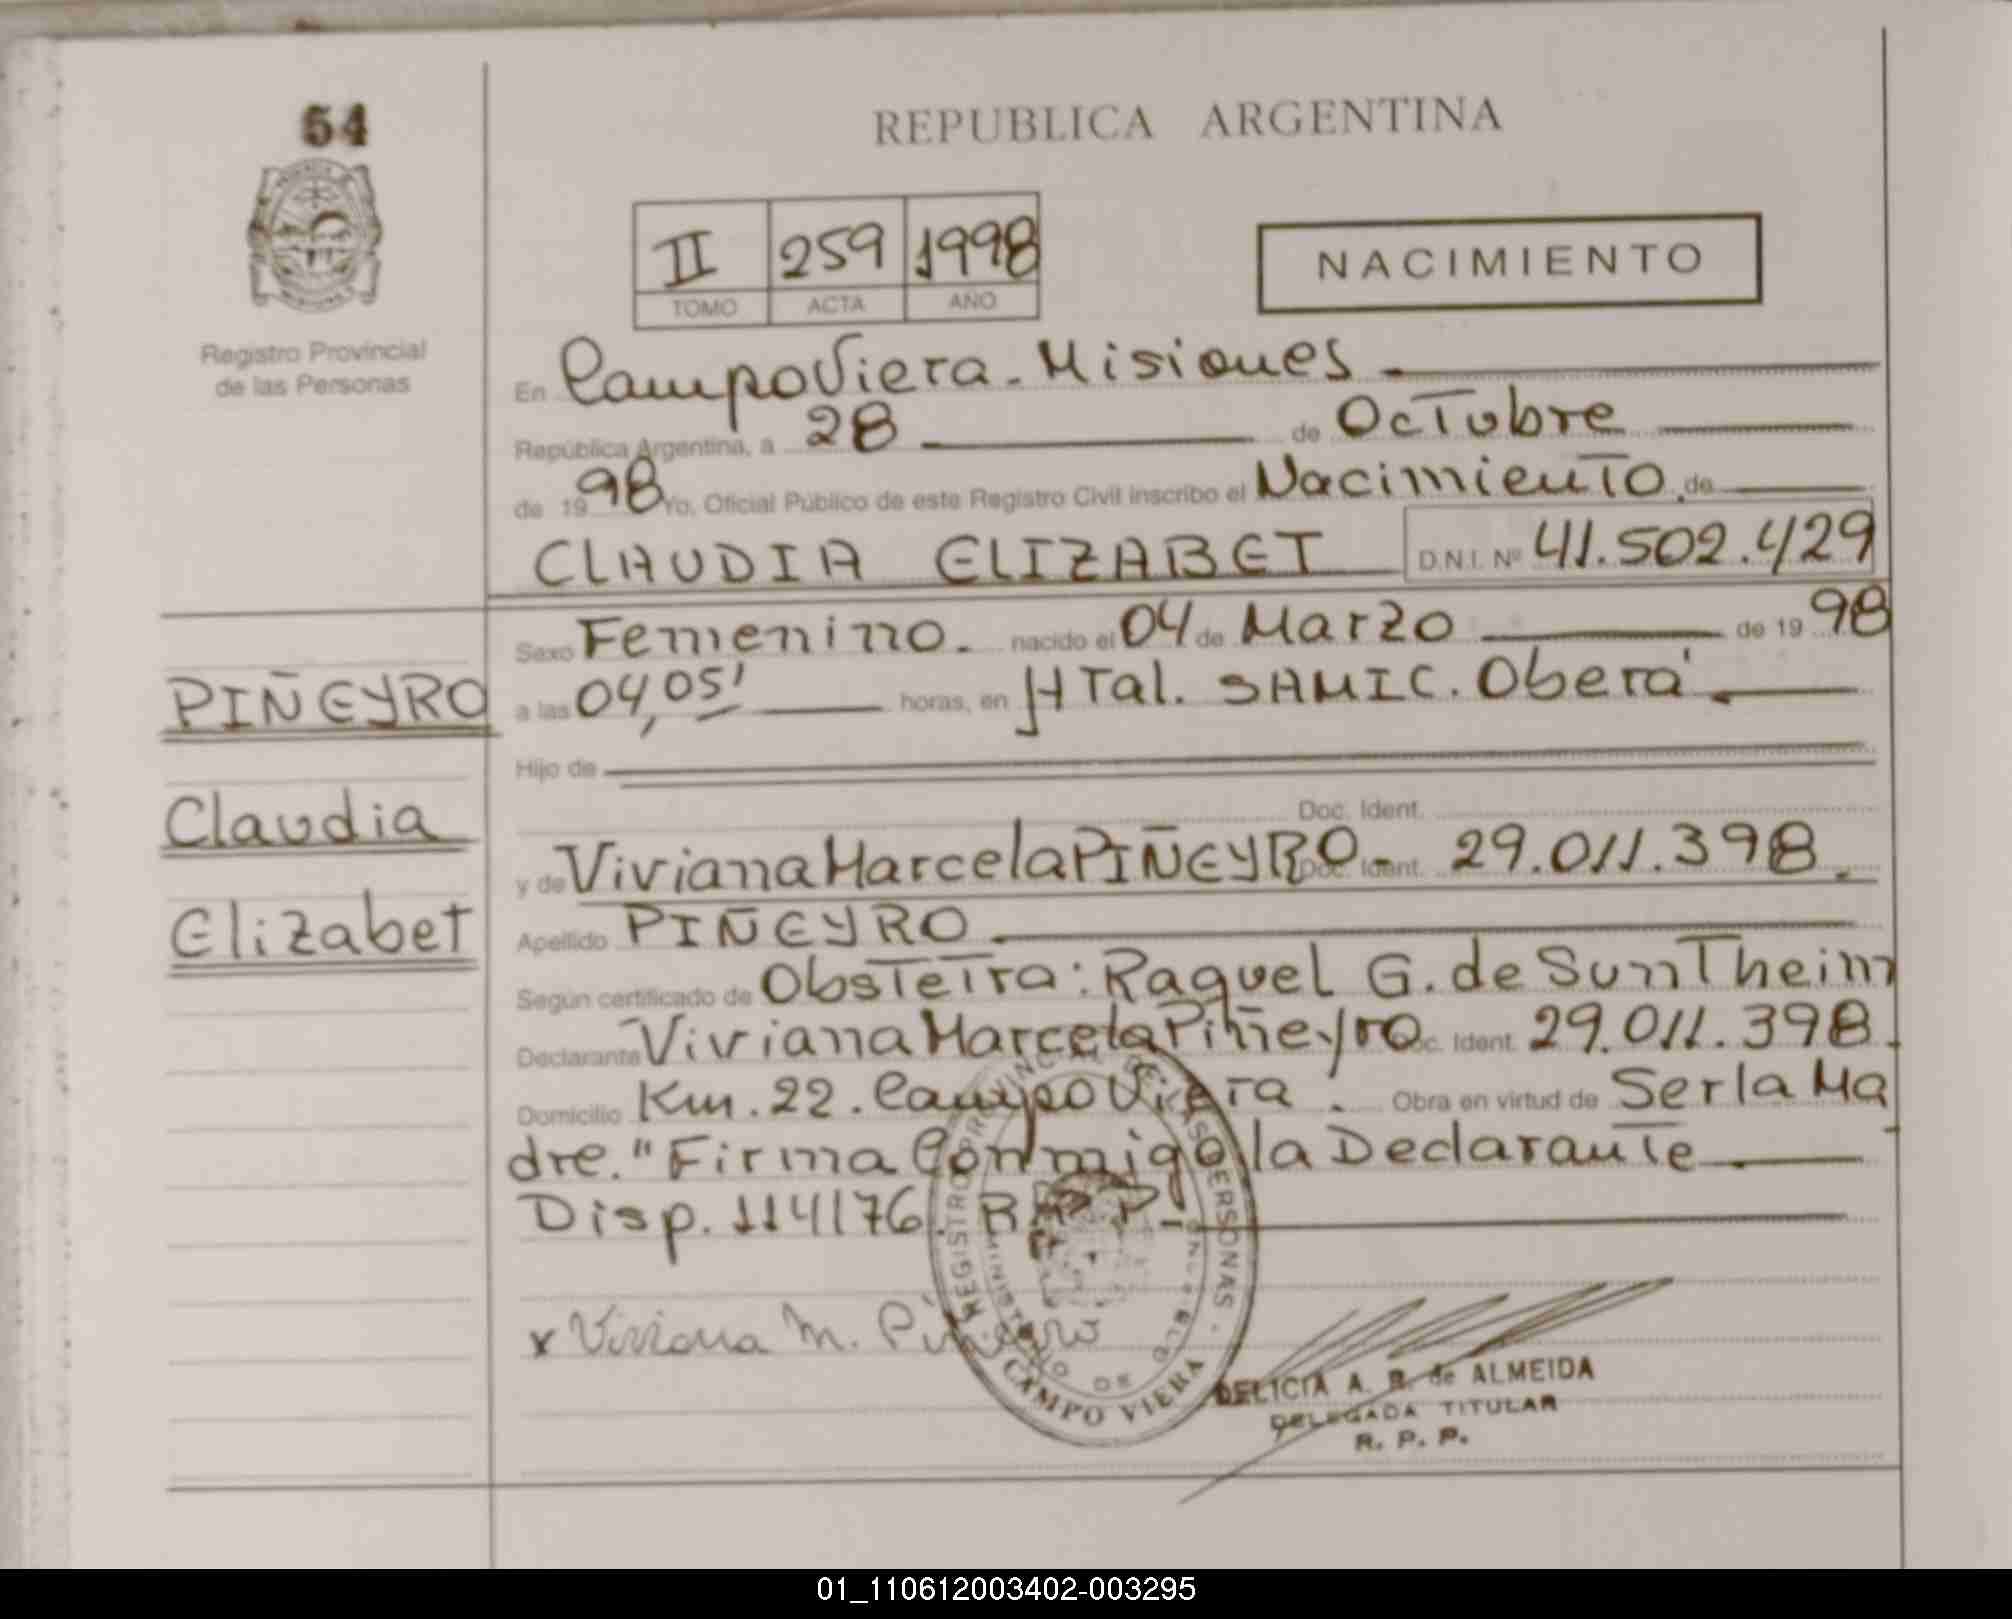 54
REPUBLICA ARGENTINA
II 259 1998
TOMO ACTA AÑO
NACIMIENTO
Registro Provincial
de las Personas
En Campo Viera - Misiones
República Argentina, a 28 de Octubre
de 1998 Yo, Oficial Público de este Registro Civil inscribo el Nacimiento de
CLAUDIA ELIZABET D.N.I. Nº 41.502.429
Sexo Femenino. nacido el 04 de Marzo de 1998
PIÑEYRO
a las 04,05' horas, en HTal. SAMIC. Oberá.
Hijo de
Claudia
Doc. Ident.
y de Viviana Marcela PIÑEYRO - Doc. Ident. 29.011.398.
Elizabet
Apellido PIÑEYRO
Según certificado de Obstetra: Raquel G. de Suntheim
Declarante Viviana Marcela Piñeyro Doc. Ident. 29.011.398.
Domicilio Km. 22. Campo Viera. Obra en virtud de Ser la Ma
dre. "Firma Conmigo la Declarante
Disp. 114/76. R.P.P.
x Viviana M. Piñeyro
REGISTRO PROVINCIAL DE LAS PERSONAS
MINISTERIO DE
CAMPO VIERA
DELICIA A. B. de ALMEIDA
DELEGADA TITULAR
R. P. P.
01_110612003402-003295